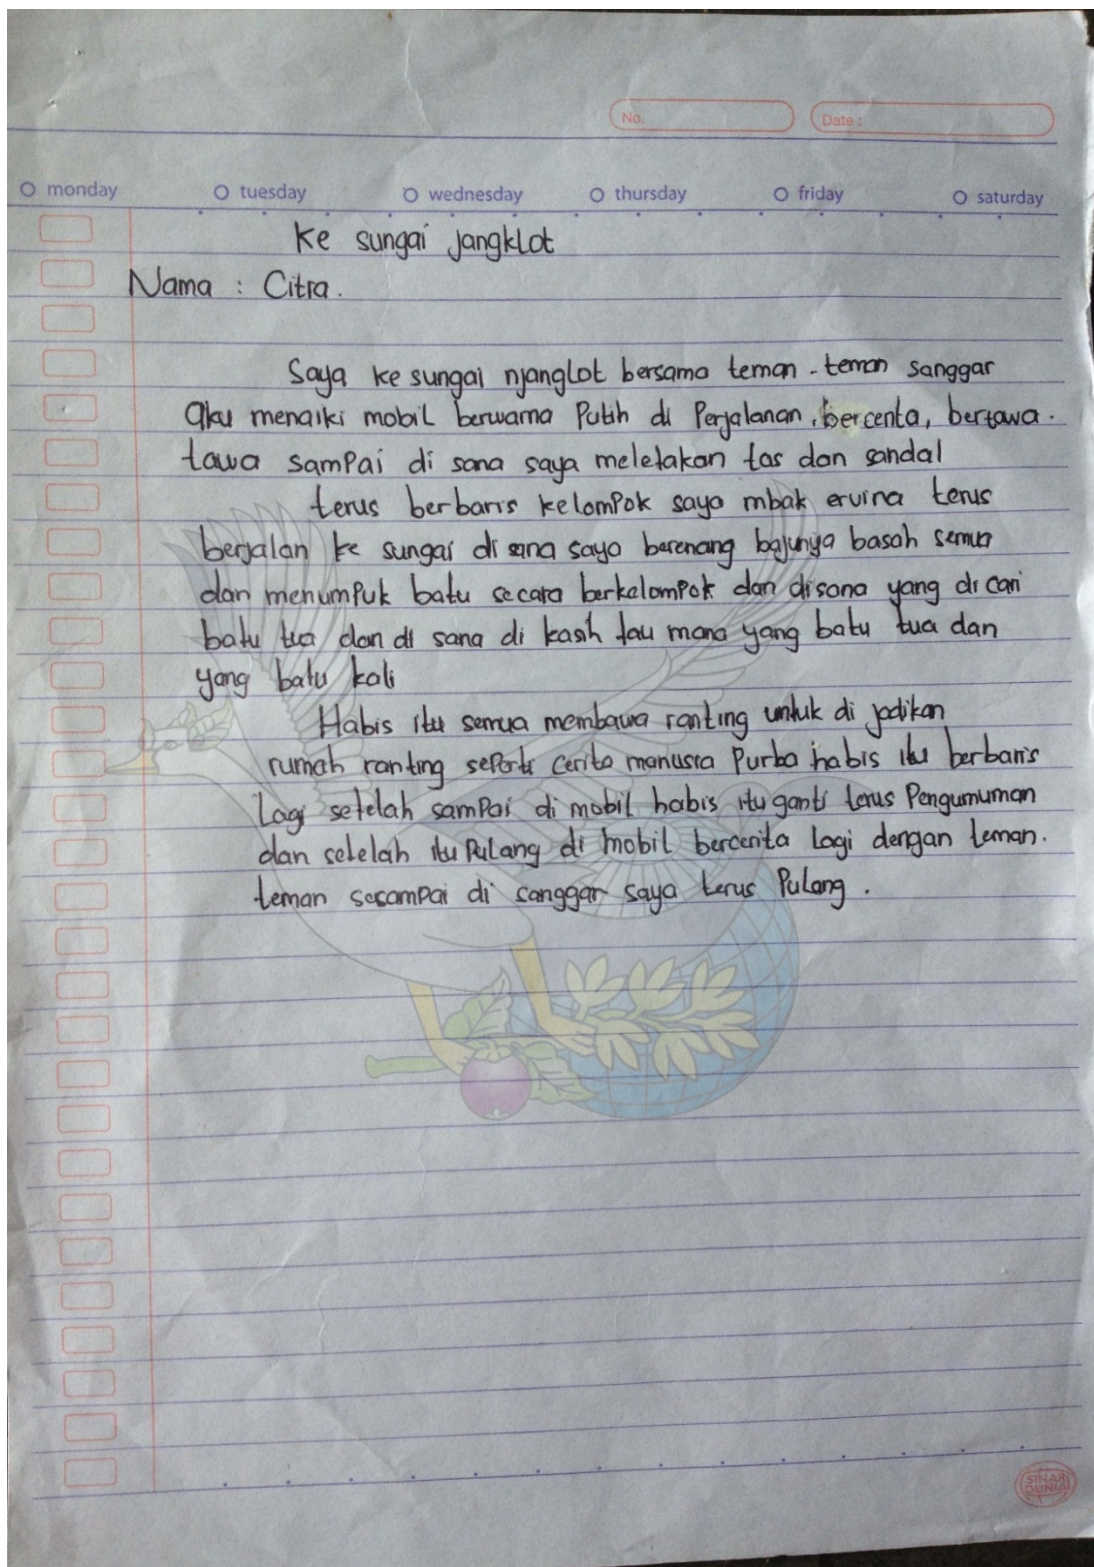 No.
Date :
monday tuesday wednesday thursday friday saturday
Ke sungai jangklot
Nama : Citra.
Saya ke sungai njanglot bersama teman-teman sanggar
aku menaiki mobil berwarna Putih di Perjalanan, bercerita, bertawa-
tawa samPai di sana saya meletakan tas dan sandal
terus berbaris kelomPok saya mbak ervina terus
berjalan ke sungai di sana saya berenang bajunya basah semua
dan menumPuk batu secara berkelomPok dan disana yang di cari
batu tua dan di sana di kasih tau mana yang batu tua dan
yang batu kali
Habis itu semua membawa ranting untuk di jadikan
rumah ranting sePerti cerita manusia Purba habis itu berbaris
Lagi setelah samPai di mobil habis itu ganti terus Pengumuman
dan setelah itu Pulang di mobil bercerita Lagi dengan teman-
teman sesamPai di sanggar saya terus Pulang.
SINAR
DUNIA